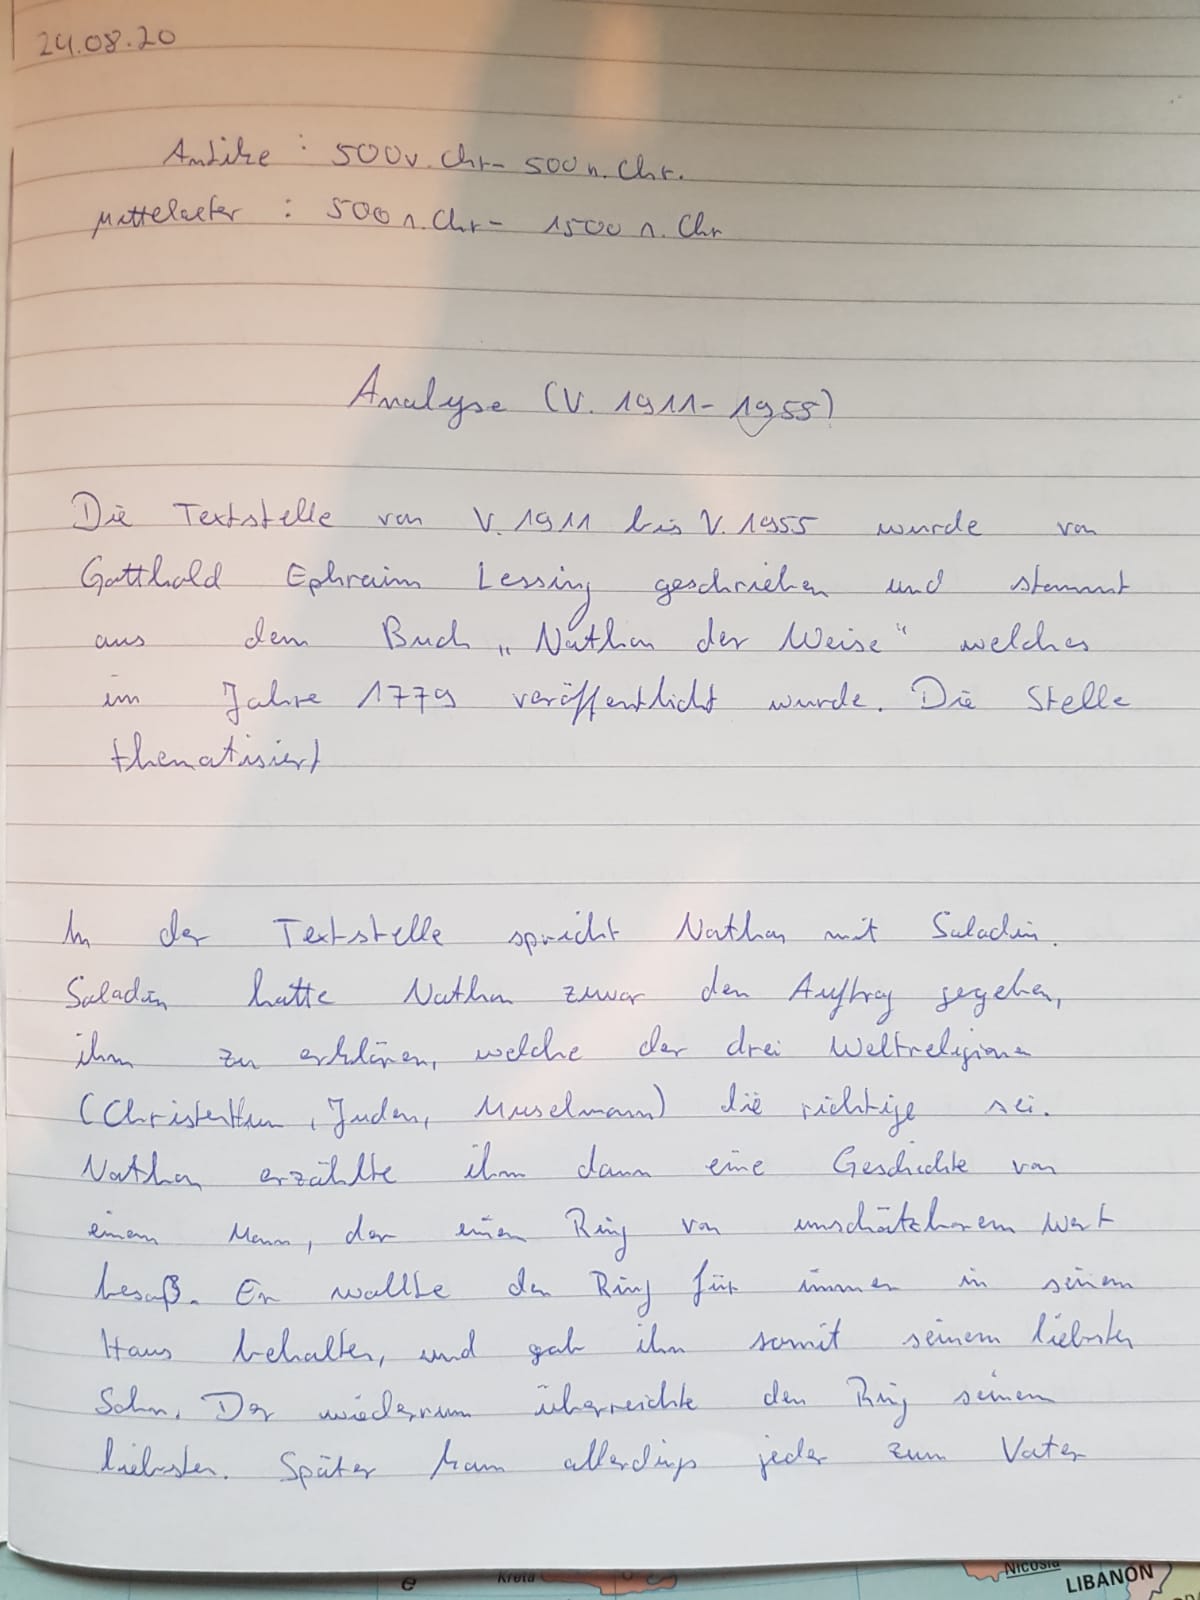 24.08.20
Antike : 500v. Chr- 500 n. Chr.
Mittelalter : 500 n. Chr- 1500 n. Chr
Analyse (V. 1911- 1955)
Die Textstelle von V. 1911 bis V. 1955 wurde von
Gotthold Ephraim Lessing geschrieben und stammt
aus dem Buch „Nathan der Weise“ welches
im Jahre 1779 veröffentlicht wurde. Die Stelle
thematisiert
In der Textstelle spricht Nathan mit Saladin.
Saladin hatte Nathan zuvor den Auftrag gegeben,
ihm zu erklären, welche der drei Weltreligionen
(Christentum, Juden, Muselmann) die richtige sei.
Nathan erzählte ihm dann eine Geschichte von
einem Mann, der einen Ring von unschätzbarem Wert
besaß. Er wollte den Ring für immer in seinem
Haus behalten, und gab ihn somit seinem liebsten
Sohn. Der wiederum überreichte den Ring seinem
liebsten. Später kam allerdings jeder zum Vater
Kreta
Nicosia
LIBANON